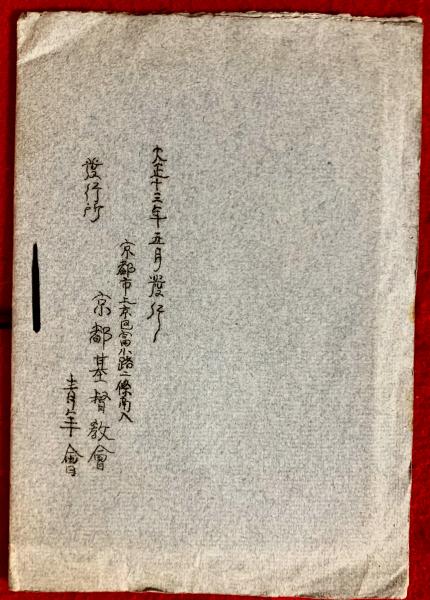 大正十三年五月發行
京都市上京區富小路二條南入
發行所
京都基督教會
青年會